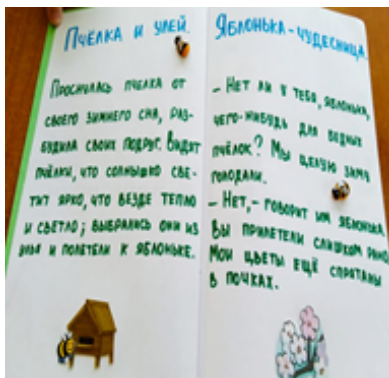 Пчёлка и улей.
Проснулась пчелка от
своего зимнего сна, раз-
будила своих подруг. Видят
пчёлки, что солнышко све-
тит ярко, что везде тепло
и светло; выбрались они из
улья и полетели к яблоньке.
Яблонька-чудесница.
- Нет ли у тебя, яблонька,
чего-нибудь для бедных
пчёлок? Мы целую зиму
голодали.
- Нет, - говорит им яблонька,
вы прилетели слишком рано.
Мои цветы ещё спрятаны
в почках.